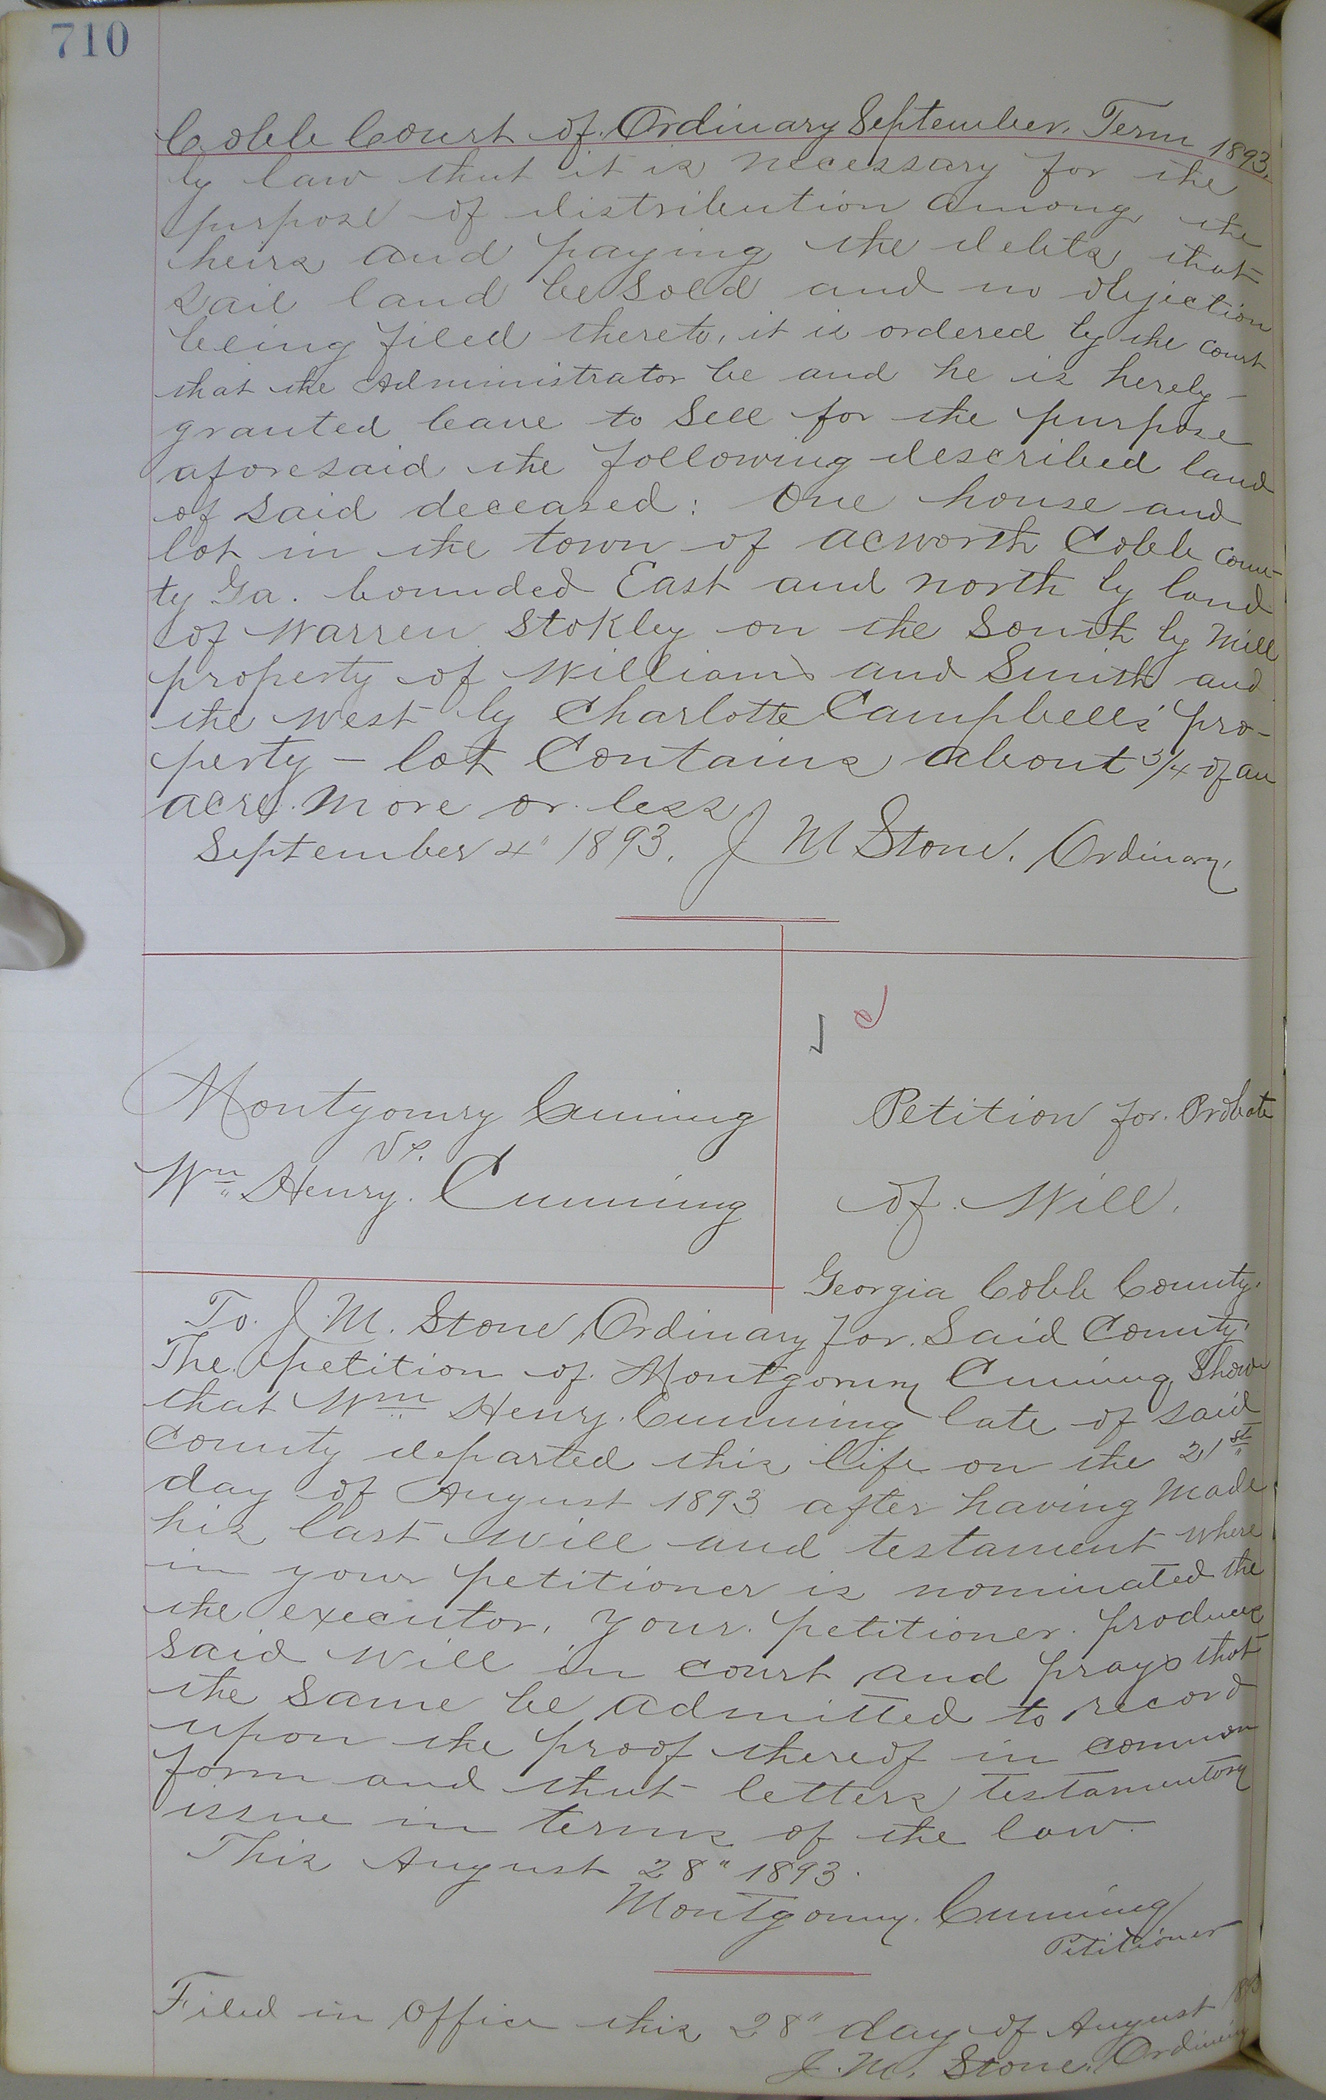 710
Cobb Court of Ordinary September Term 1893.
by law that it is necessary for the
purpose of distribution among the
heirs and paying the debts that
said land be sold and no objection
being filed thereto, it is ordered by the court
that the Administrator be and he is hereby
granted leave to sell for the purpose
aforesaid the following described land
of said deceased: One house and
lot in the town of Acworth Cobb Coun-
ty Ga. bounded East and north by land
of Warren Stokley on the South by Mill
property of Williams and Smith and
the West by Charlotte Campbells' pro-
perty - lot Contains about 3/4 of an
acre more or less
September 4" 1893. J M Stone. Ordinary.
Montgomry Cuming
vs.
Wm Henry. Cumming
Petition for Probate
of Will.
Georgia Cobb County.
To. J. M. Stone Ordinary for Said County.
The petition of Montgomry Cuming Shows
that Wm Henry Cumming late of said
County departed this life on the 21st
day of August 1893 after having made
his last Will and testament where
in your petitioner is nominated the
the executor. Your petitioner produces
said will in court and prays that
the same be admitted to record
upon the proof thereof in common
form and that letters testamentory
issue in terms of the law.
This August 28" 1893.
Montgomry. Cumming
Petitioner
Filed in Office this 28" day of August 1893
J. M. Stone. Ordinary